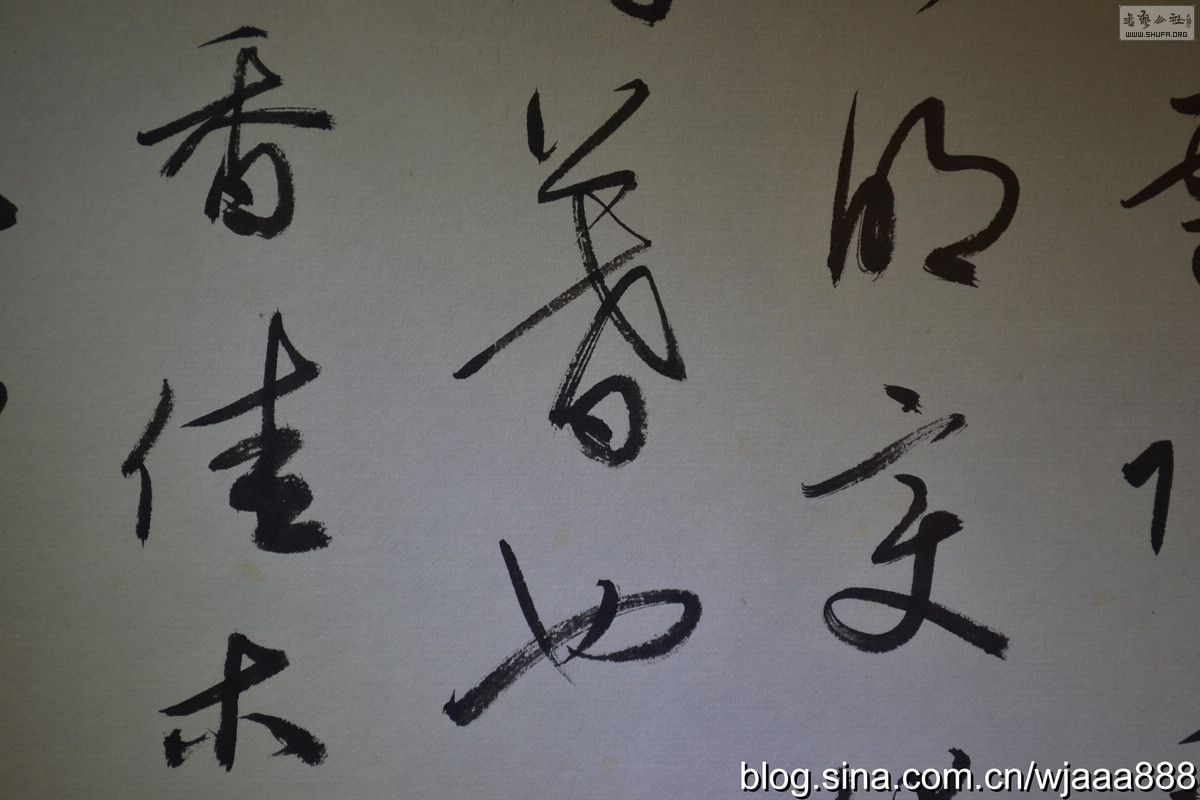 明變
暮也
香佳木
書藝公社
WWW.SHUFA.ORG
blog.sina.com.cn/wjaaa888